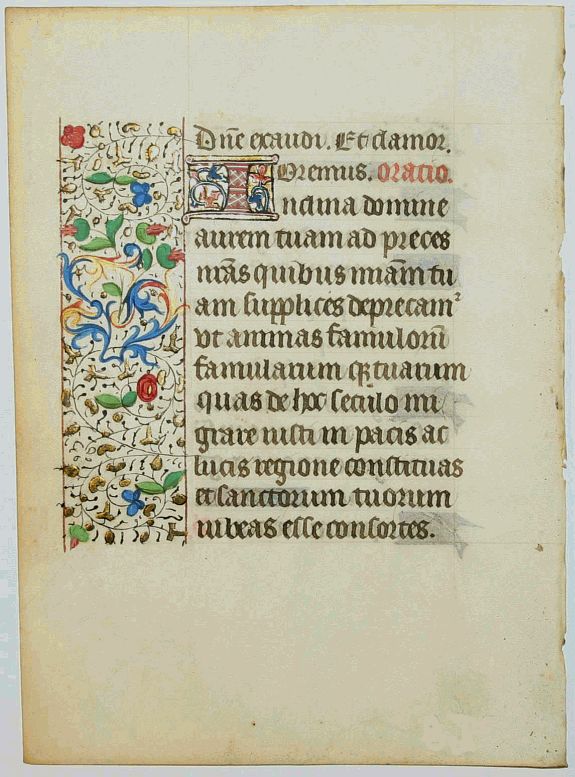 Dñe exaudi. Et clamor.
Oremus. Oratio.
Inclina domine
aurem tuam ad preces
nr̃as quibus mĩam tu
am supplices deprecam²
vt animas famulorũ
famularum qꝫ tuarum
quas de hoc seculo mi
grare iusti in pacis ac
lucis regione constituas
et sanctorum tuorum
iubeas esse consortes.